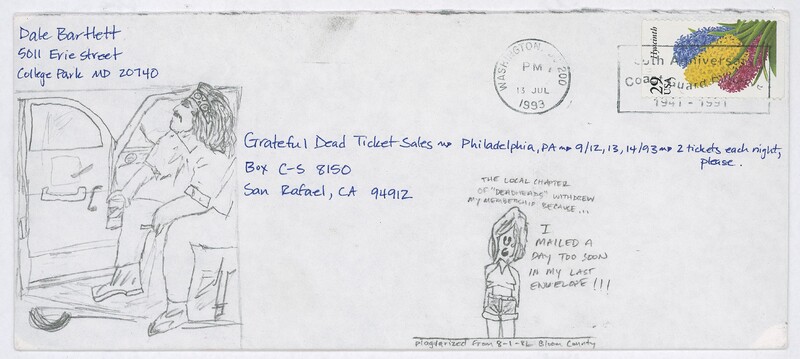 Dale Bartlett
5011 Erie Street
College Park MD 20740
WASHINGTON, DC 200
PM
13 JUL
1993
50th Anniversary
Coast Guard
1941 - 1991
Hyacinth
29
USA
Grateful Dead Ticket Sales → Philadelphia, PA → 9/12, 13, 14/93 → 2 tickets each night,
please.
Box C-S 8150
San Rafael, CA 94912
THE LOCAL CHAPTER
OF "DEADHEADS" WITHDREW
MY MEMBERSHIP BECAUSE...
I
MAILED A
DAY TOO SOON
IN MY LAST
ENVELOPE!!!
plagiarized from 8-1-86 Bloom County